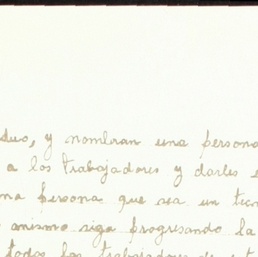 duo, y nombran una persona
a los trabajadores y darles
na persona que sea un tecn
mismo siga progresando la
todos los trabajadores de